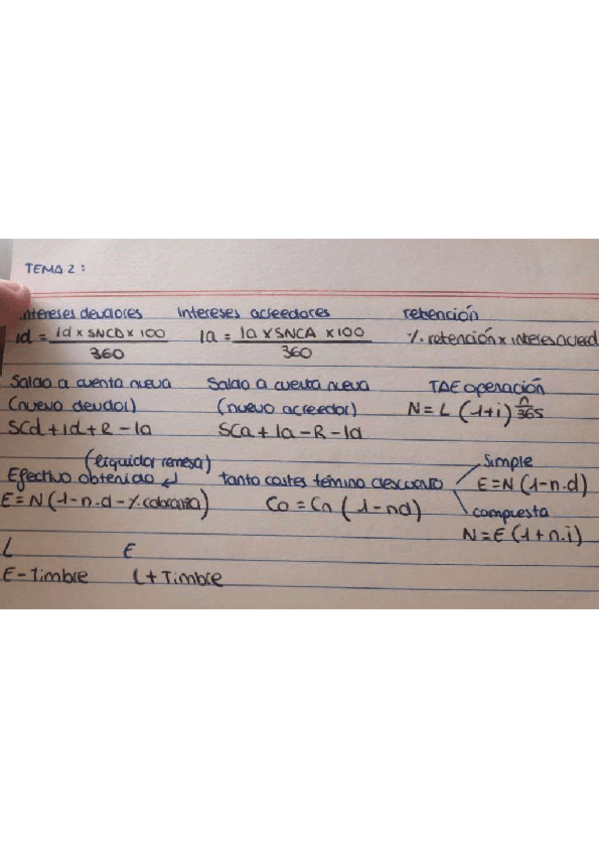 TEMA 2 :
Intereses deudores Intereses acreedores retención
Id = Id x SNCD x 100 / 360 Ia = Ia x SNCA x 100 / 360 %. retención x interes acreed
Saldo a cuenta nueva Saldo a cuenta nueva TAE operación
(nuevo deudor) (nuevo acreedor) N = L (1+i) n/365
SCd + Id + R - Ia SCa + Ia - R - Id
(liquidar remesa) Simple
Efectivo obtenido ↲ tanto costes término descuento E = N (1-n.d)
E = N (1-n.d - %.cobranza) Co = Cn (1-nd) compuesta
N = E (1+n.i)
L E
E - Timbre L + Timbre